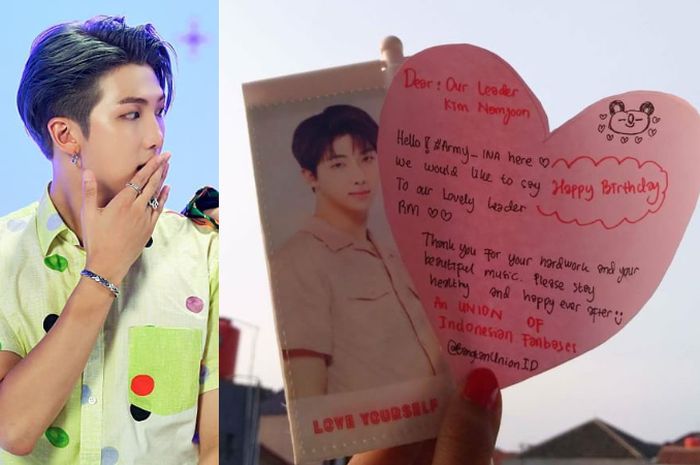 Dear : Our Leader
Kim Namjoon
Hello! #Army_INA here ♡
we would like to say Happy Birthday
To our Lovely Leader
RM ♡♡
Thank you for your hardwork and your
beautiful music. Please stay
healthy and happy ever after
An UNION OF
Indonesian Fanbases
@BangtanUnionID
LOVE YOURSELF